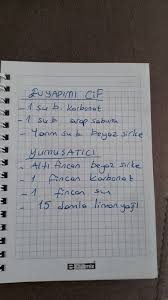 EV YAPIMI CİF
- 1 su b. karbonat
- 1 su b arap sabunu
- Yarım su b beyaz sirke
YUMUŞATICI
- Altı fincan beyaz sirke
- 1 fincan karbonat
- 1 fincan su
- 15 damla limon yağı